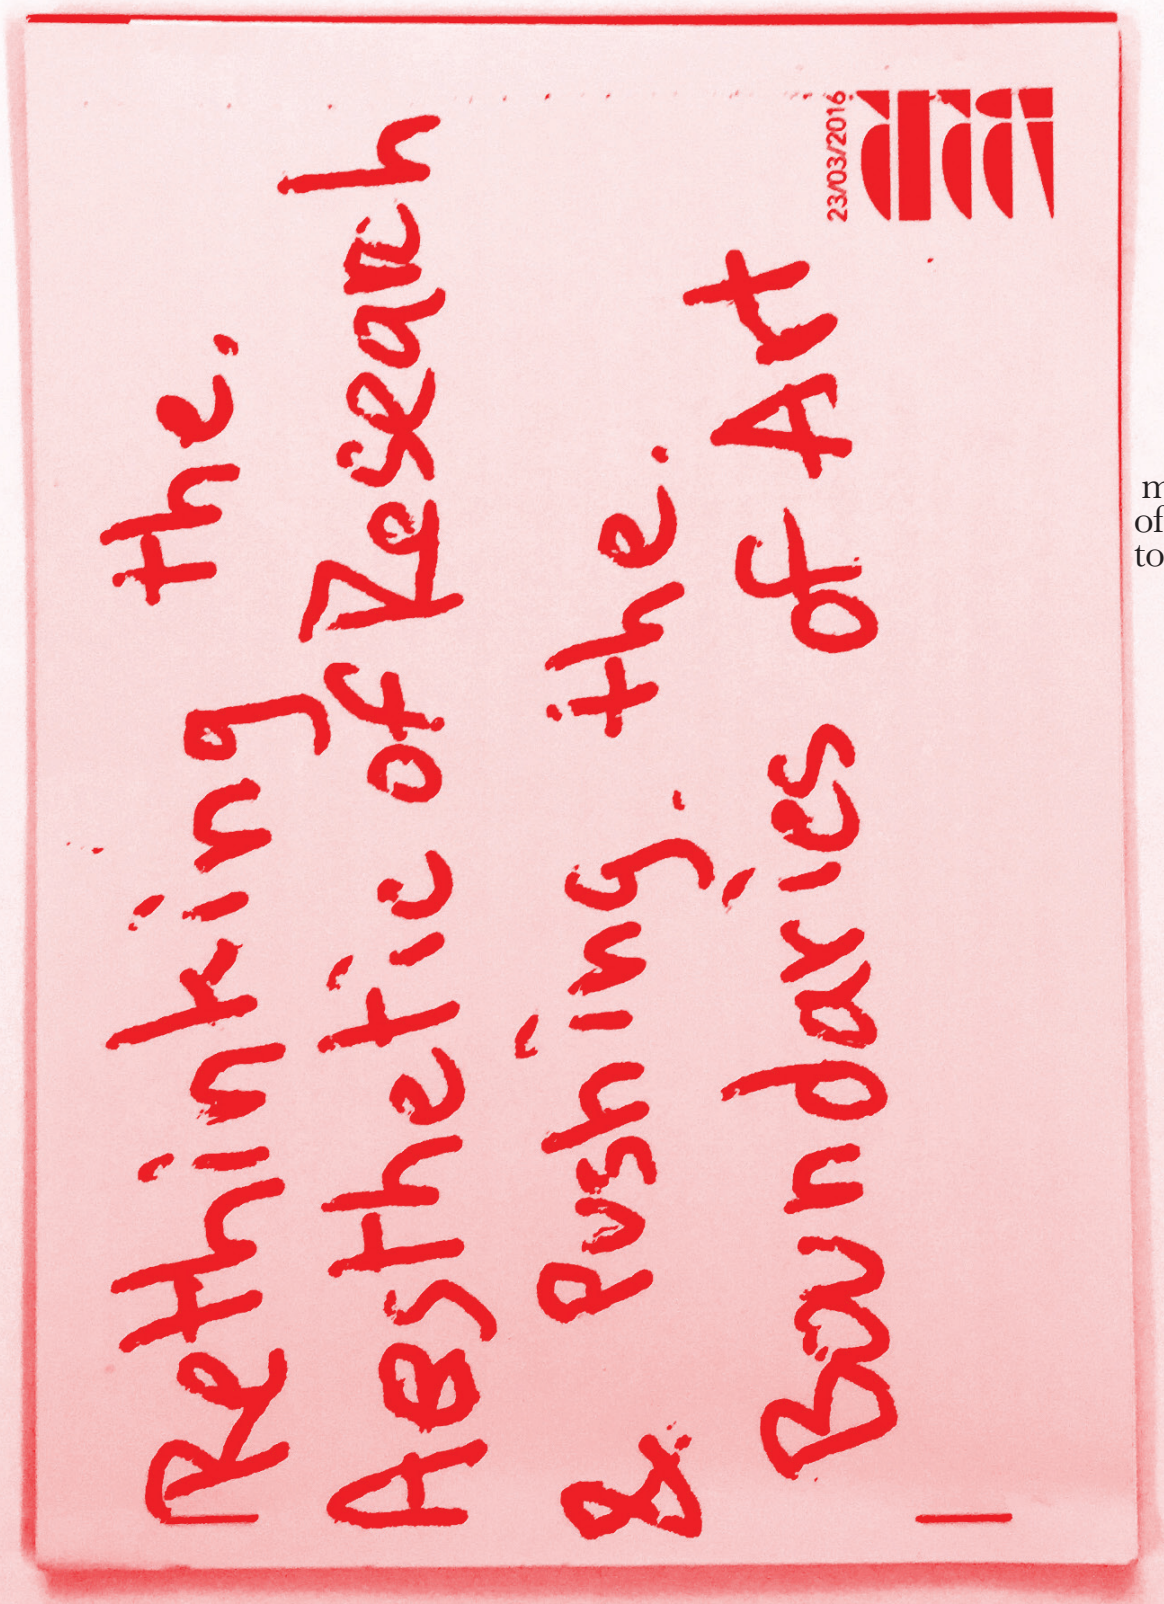 Rethinking the.
Aesthetic of Research
& Pushing. the.
Boundaries of Art
23/03/2016
m
of
to